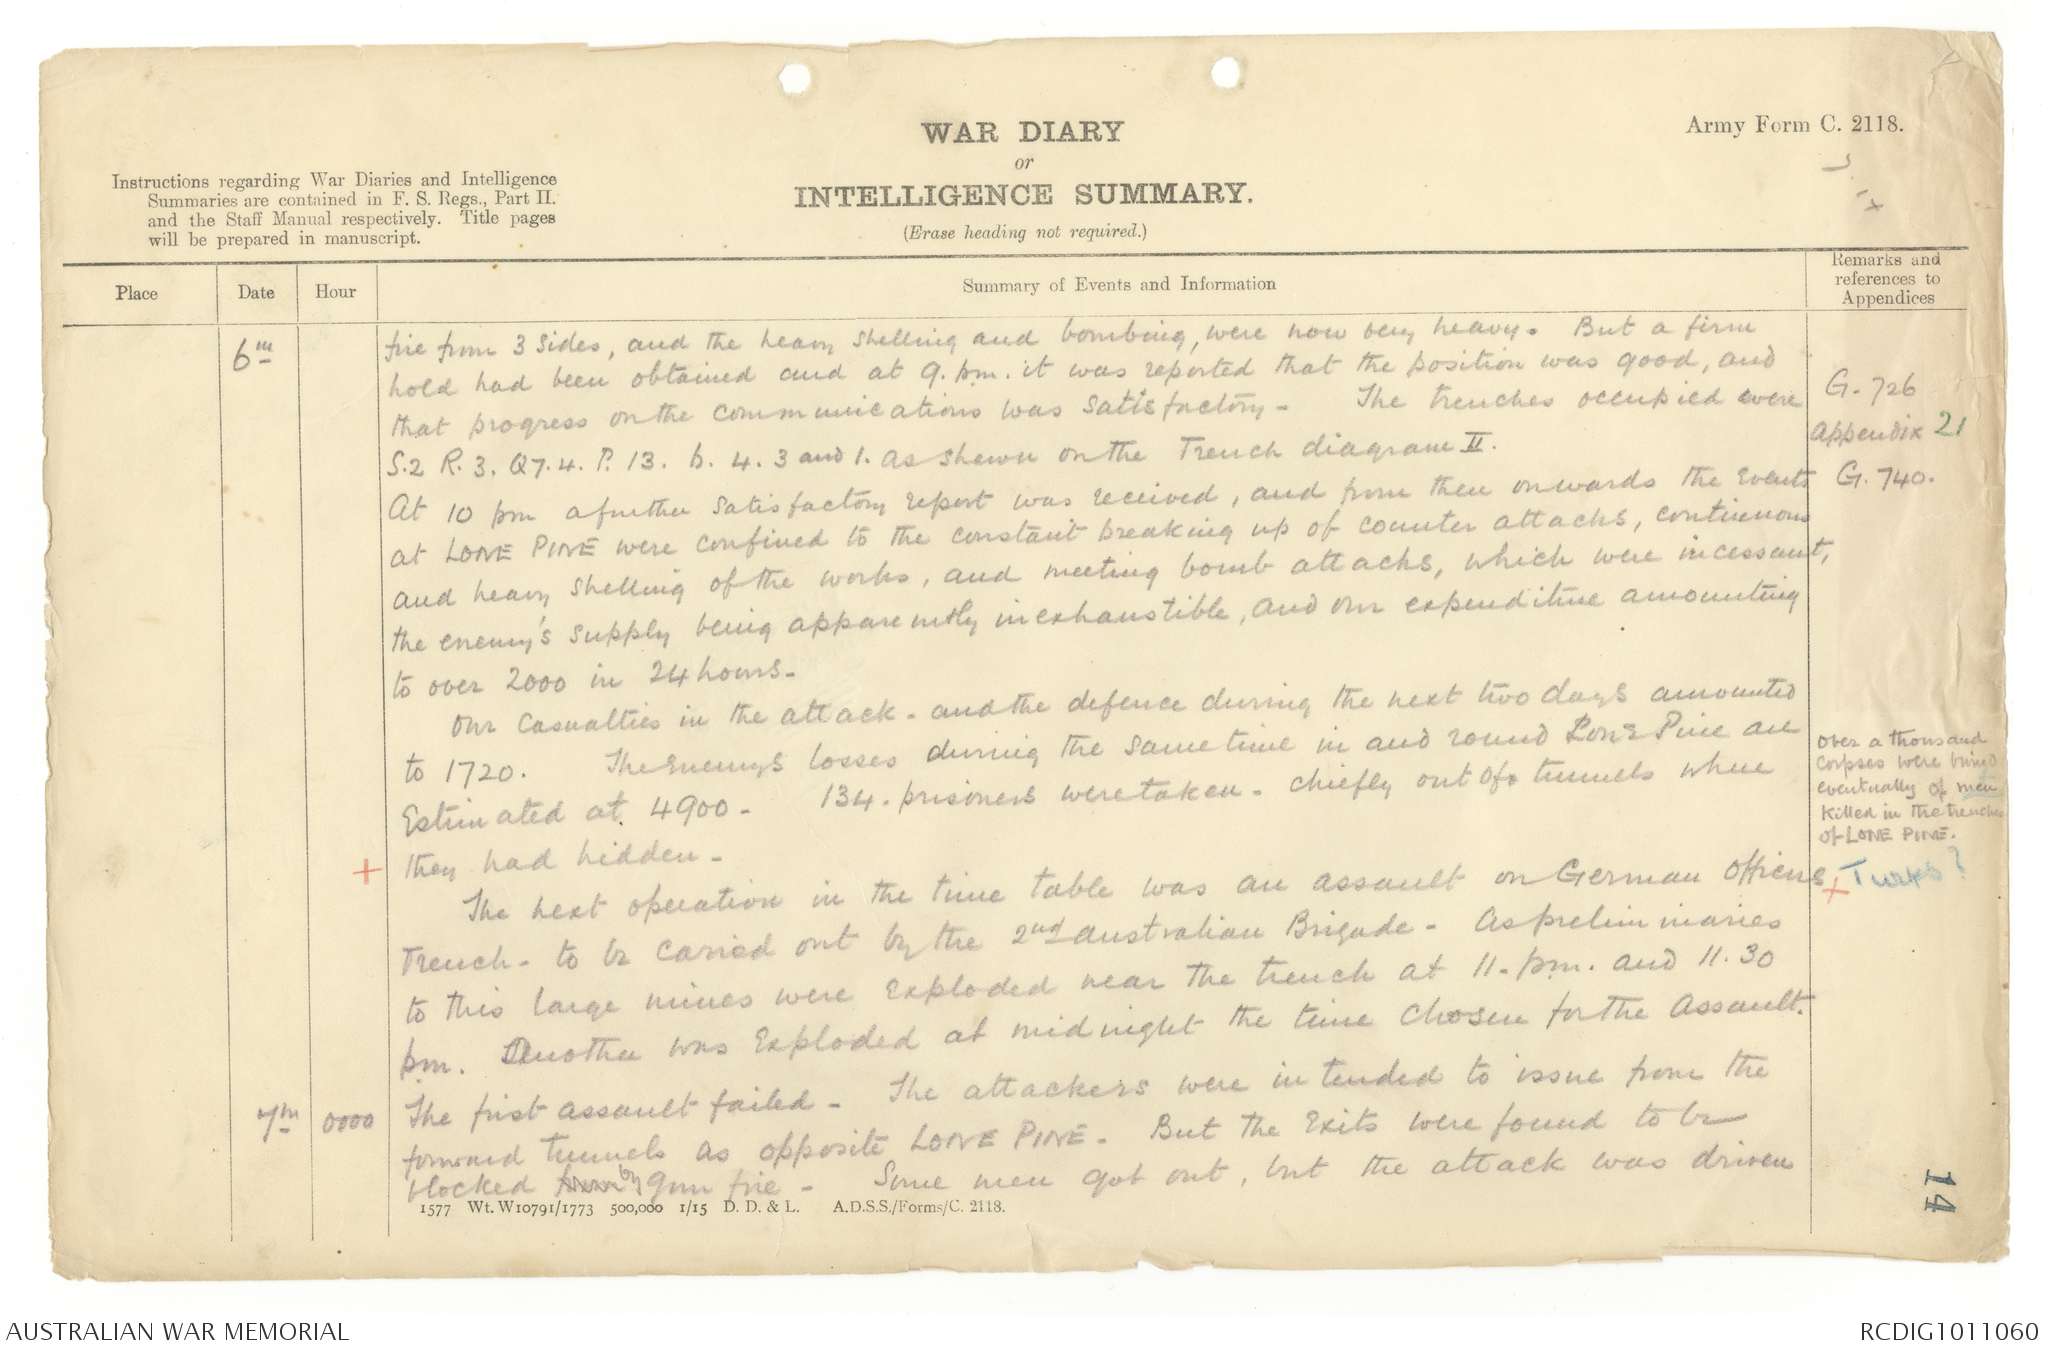 WAR DIARY
or
INTELLIGENCE SUMMARY.
(Erase heading not required.)
Army Form C. 2118.
Instructions regarding War Diaries and Intelligence
Summaries are contained in F. S. Regs., Part II.
and the Staff Manual respectively. Title pages
will be prepared in manuscript.
Place Date Hour Summary of Events and Information Remarks and
references to
Appendices
6th fire from 3 sides, and the heavy shelling and bombing, were now very heavy. But a firm
hold had been obtained and at 9. pm. it was reported that the position was good, and
that progress on the communications was satisfactory - The trenches occupied were
S.2 R. 3. Q7. 4. P. 13. b. 4. 3 and 1. as shewn on the Trench diagram II.
G. 726
Appendix 21
G. 740.
At 10 pm a further satisfactory report was received, and from then onwards the Events
at LONE PINE were confined to the constant breaking up of counter attacks, continuous
and heavy shelling of the works, and meeting bomb attacks, which were incessant,
the enemy's supply being apparently inexhaustible, and our expenditure amounting
to over 2000 in 24 hours -
Our casualties in the attack - and the defence during the next two days amounted
to 1720. The Enemys losses during the same time in and round Lone Pine are
Estimated at 4900 - 134. prisoners were taken - chiefly out of tunnels where
they had hidden -
over a thousand
corpses were buried
eventually of men
killed in the trenches
of LONE PINE.
+ Turks?
+
The next operation in the time table was an assault on German Officers
Trench - to be carried out by the 2nd Australian Brigade - As preliminaries
to this large mines were exploded near the trench at 11. pm. and 11.30
pm. Another was Exploded at midnight the time chosen for the Assault.
7th 0000 The first assault failed - The attackers were intended to issue from the
forward tunnels as opposite LONE PINE - But the Exits were found to be
blocked from by gun fire - Some men got out, but the attack was driven
1577 Wt. W10791/1773 500,000 1/15 D. D. & L. A.D.S.S./Forms/C. 2118.
14
AUSTRALIAN WAR MEMORIAL
RCDIG1011060